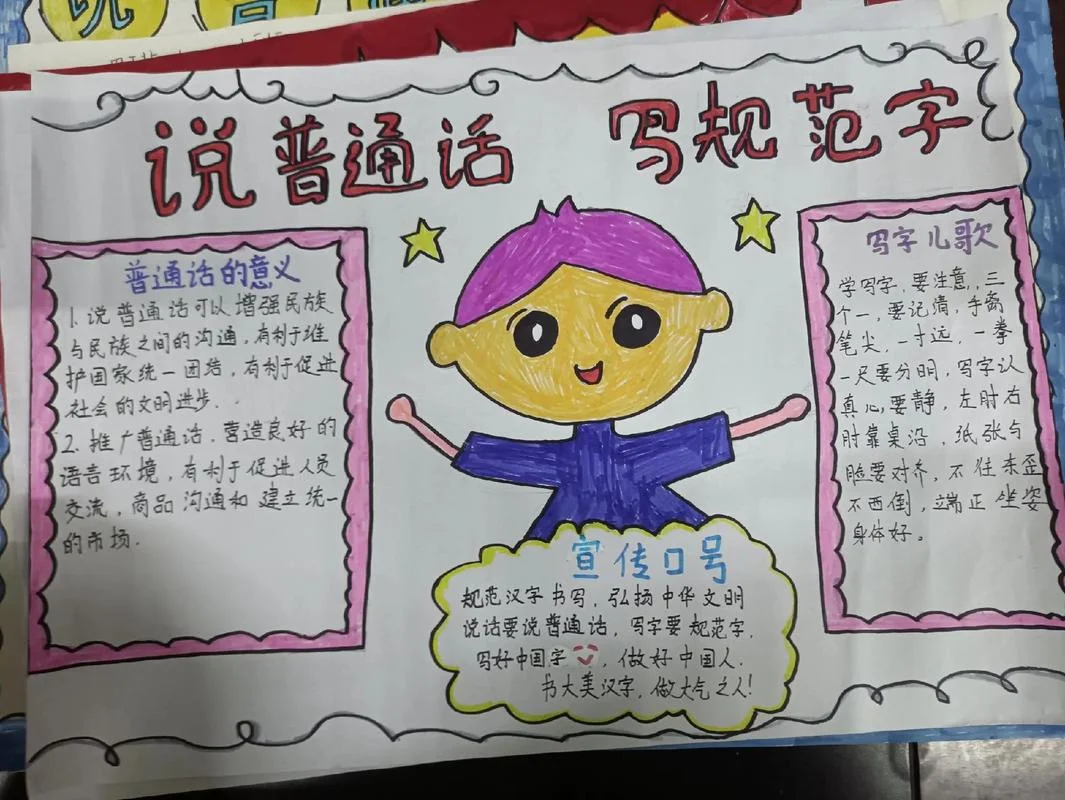 说普通话 写规范字
普通话的意义
1.说普通话可以增强民族
与民族之间的沟通,有利于维
护国家统一团结,有利于促进
社会的文明进步.
2.推广普通话,营造良好的
语言环境,有利于促进人员
交流,商品沟通和建立统一
的市场.
写字儿歌
学写字,要注意,三
个一,要记清,手离
笔尖,一寸远,一拳
一尺要分明,写字认
真心要静,左肘右
肘靠桌沿,纸张与
脸要对齐,不往东歪
不西倒,立端正坐姿
身体好。
宣传口号
规范汉字书写,弘扬中华文明
说话要说普通话,写字要规范字,
写好中国字,做好中国人.
书大美汉字,做大气之人!